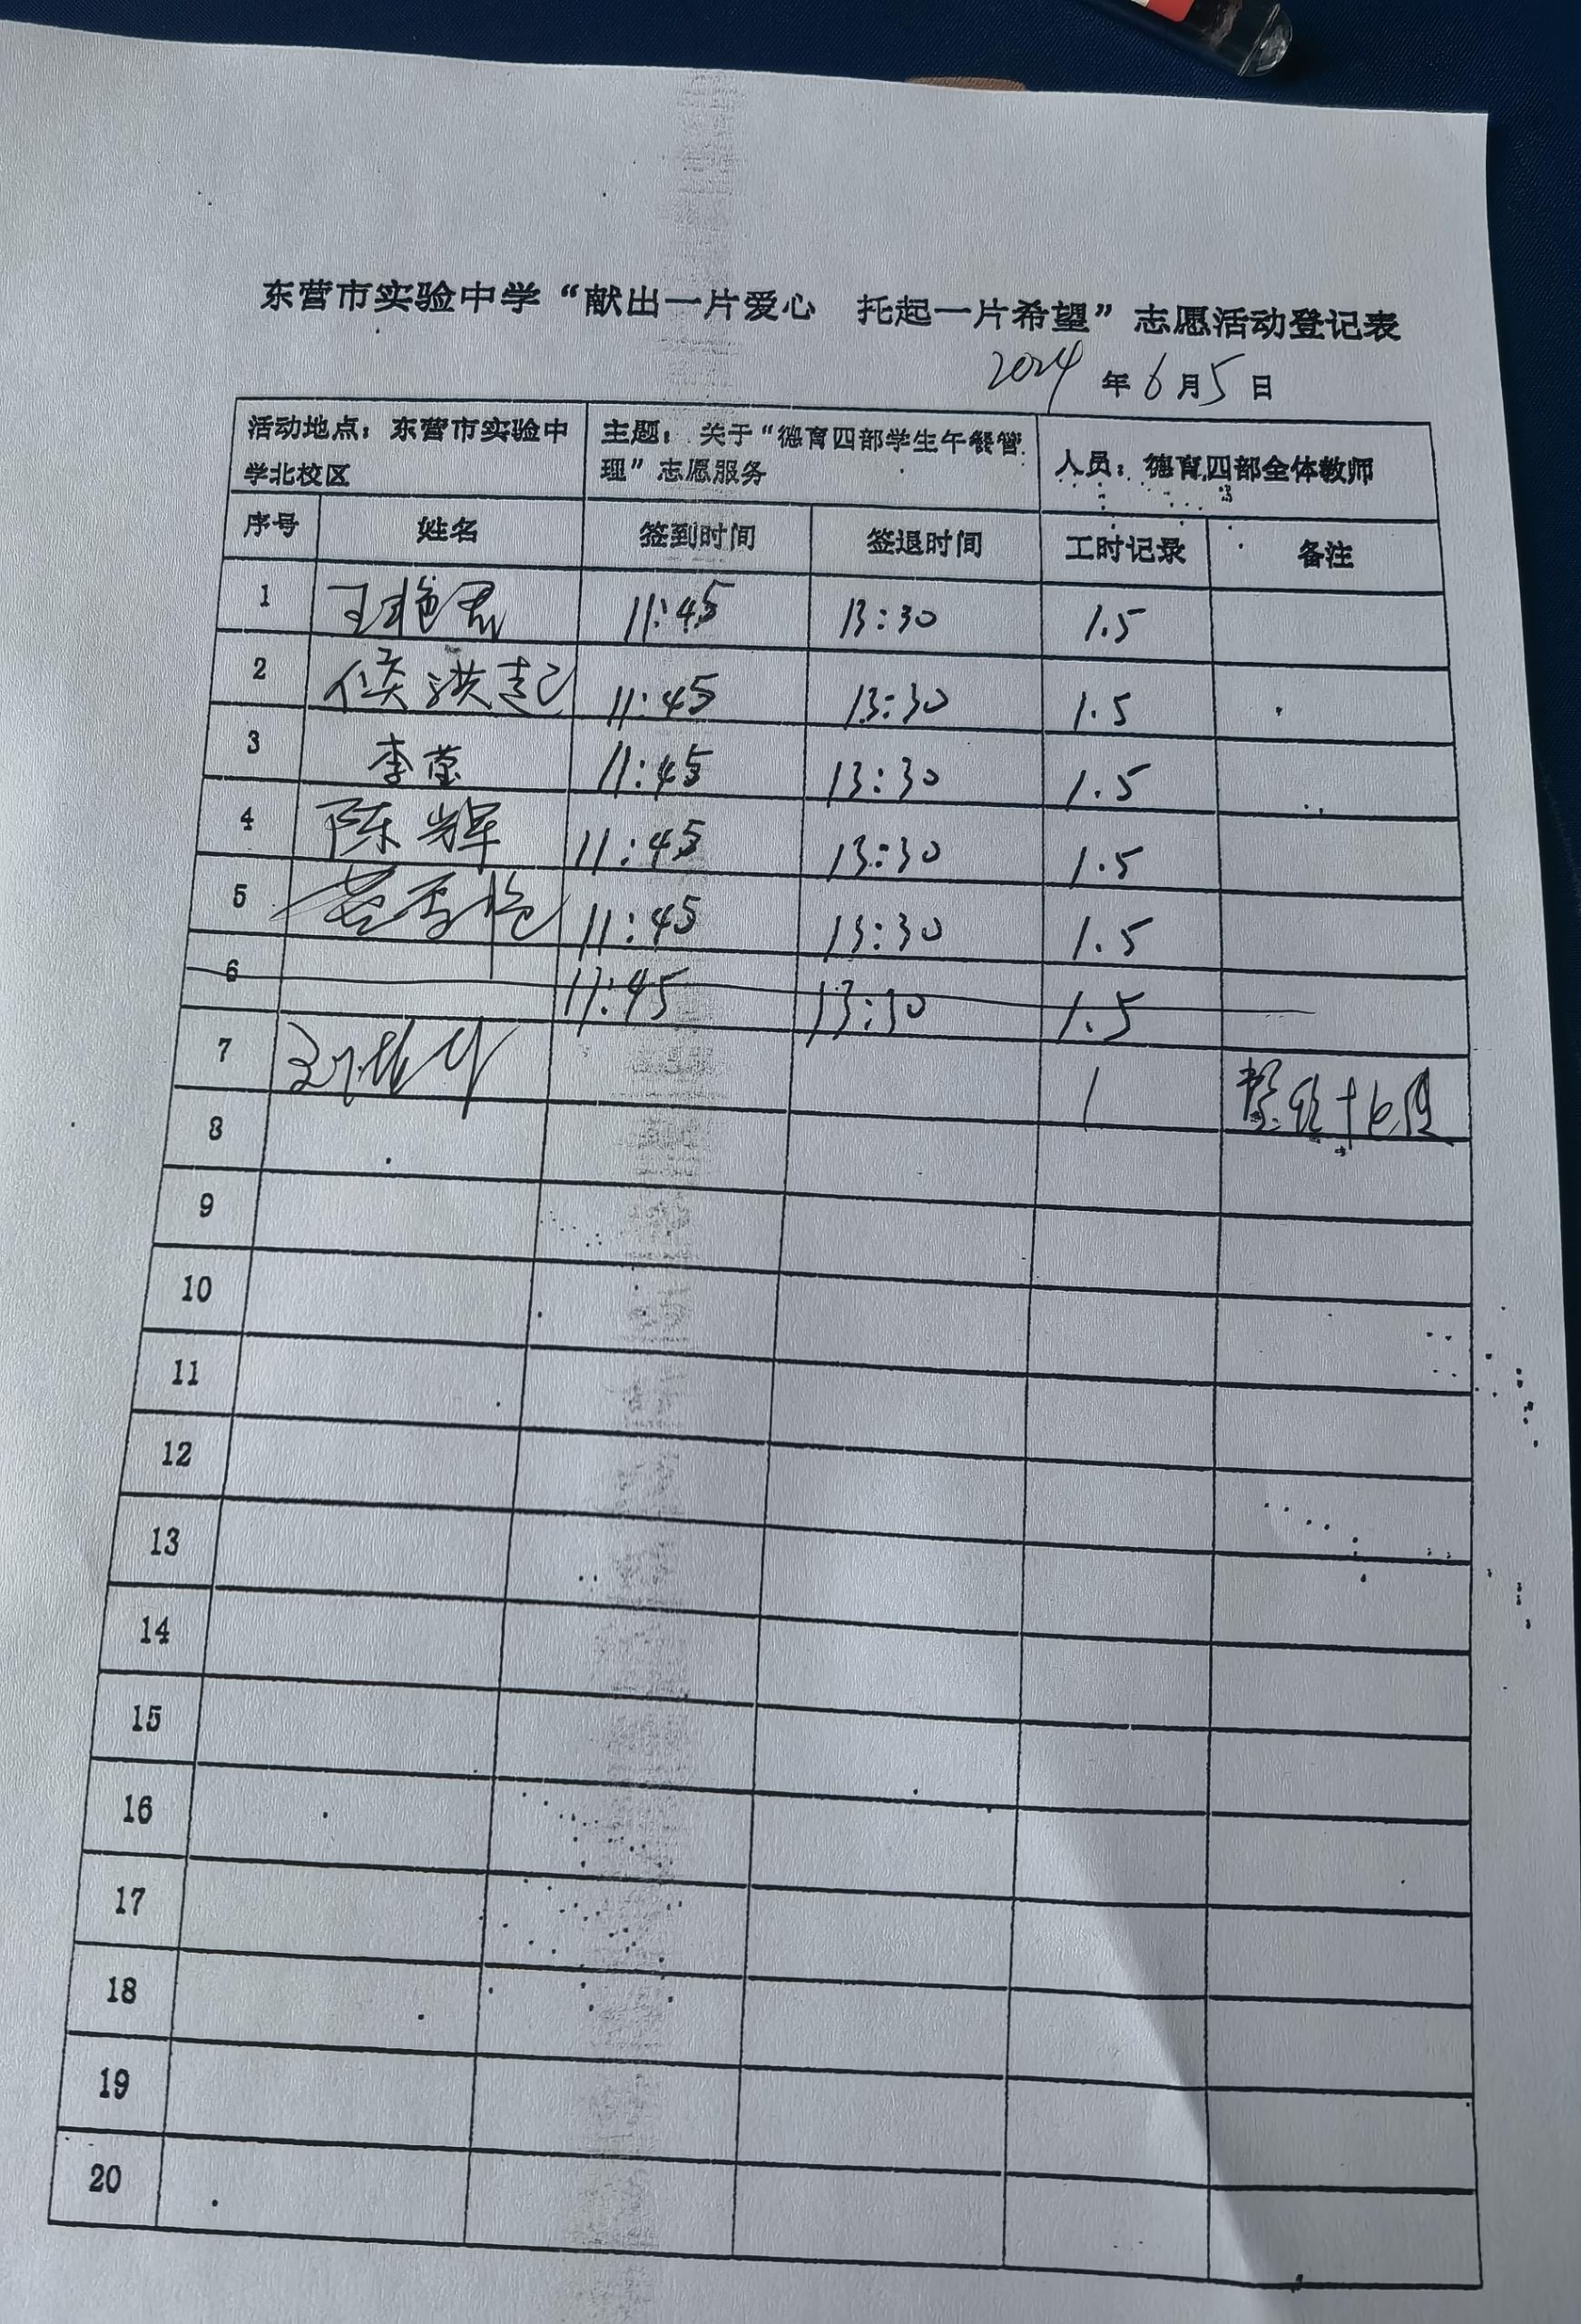 东营市实验中学“献出一片爱心 托起一片希望”志愿活动登记表
2024年6月5日
活动地点：东营市实验中学北校区 主题：关于“德育四部学生午餐管理”志愿服务 人员：德育四部全体教师
序号 姓名 签到时间 签退时间 工时记录 备注
1 王艳君 11:45 13:30 1.5
2 侯洪起 11:45 13:30 1.5
3 李莹 11:45 13:30 1.5
4 陈辉 11:45 13:30 1.5
5 11:45 13:30 1.5
6 11:45 13:30 1.5
7 1
8
9
10
11
12
13
14
15
16
17
18
19
20